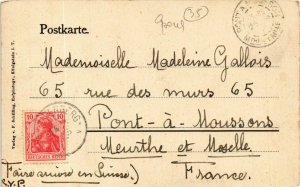 35
Postkarte.
Mademoiselle Madeleine Gallois
65 rue des murs 65
Pont-à-Moussons
Meurthe et Moselle
France.
10 10
DEUTSCHES REICH
(Faire suivre en Suisse)
S.V.P.